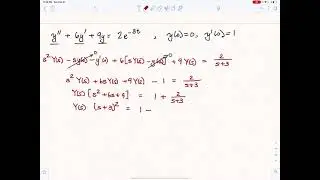 y'' + 6y' + 9y = 2e^{-3t} , y(0)=0, y'(0)=1
s² Y(s) - sy(0) - y'(0) + 6[sY(s) - y(0)] + 9 Y(s) = 2/(s+3)
s² Y(s) + 6s Y(s) + 9 Y(s) - 1 = 2/(s+3)
Y(s) [s² + 6s + 9] = 1 + 2/(s+3)
Y(s) (s+3)² = 1 -